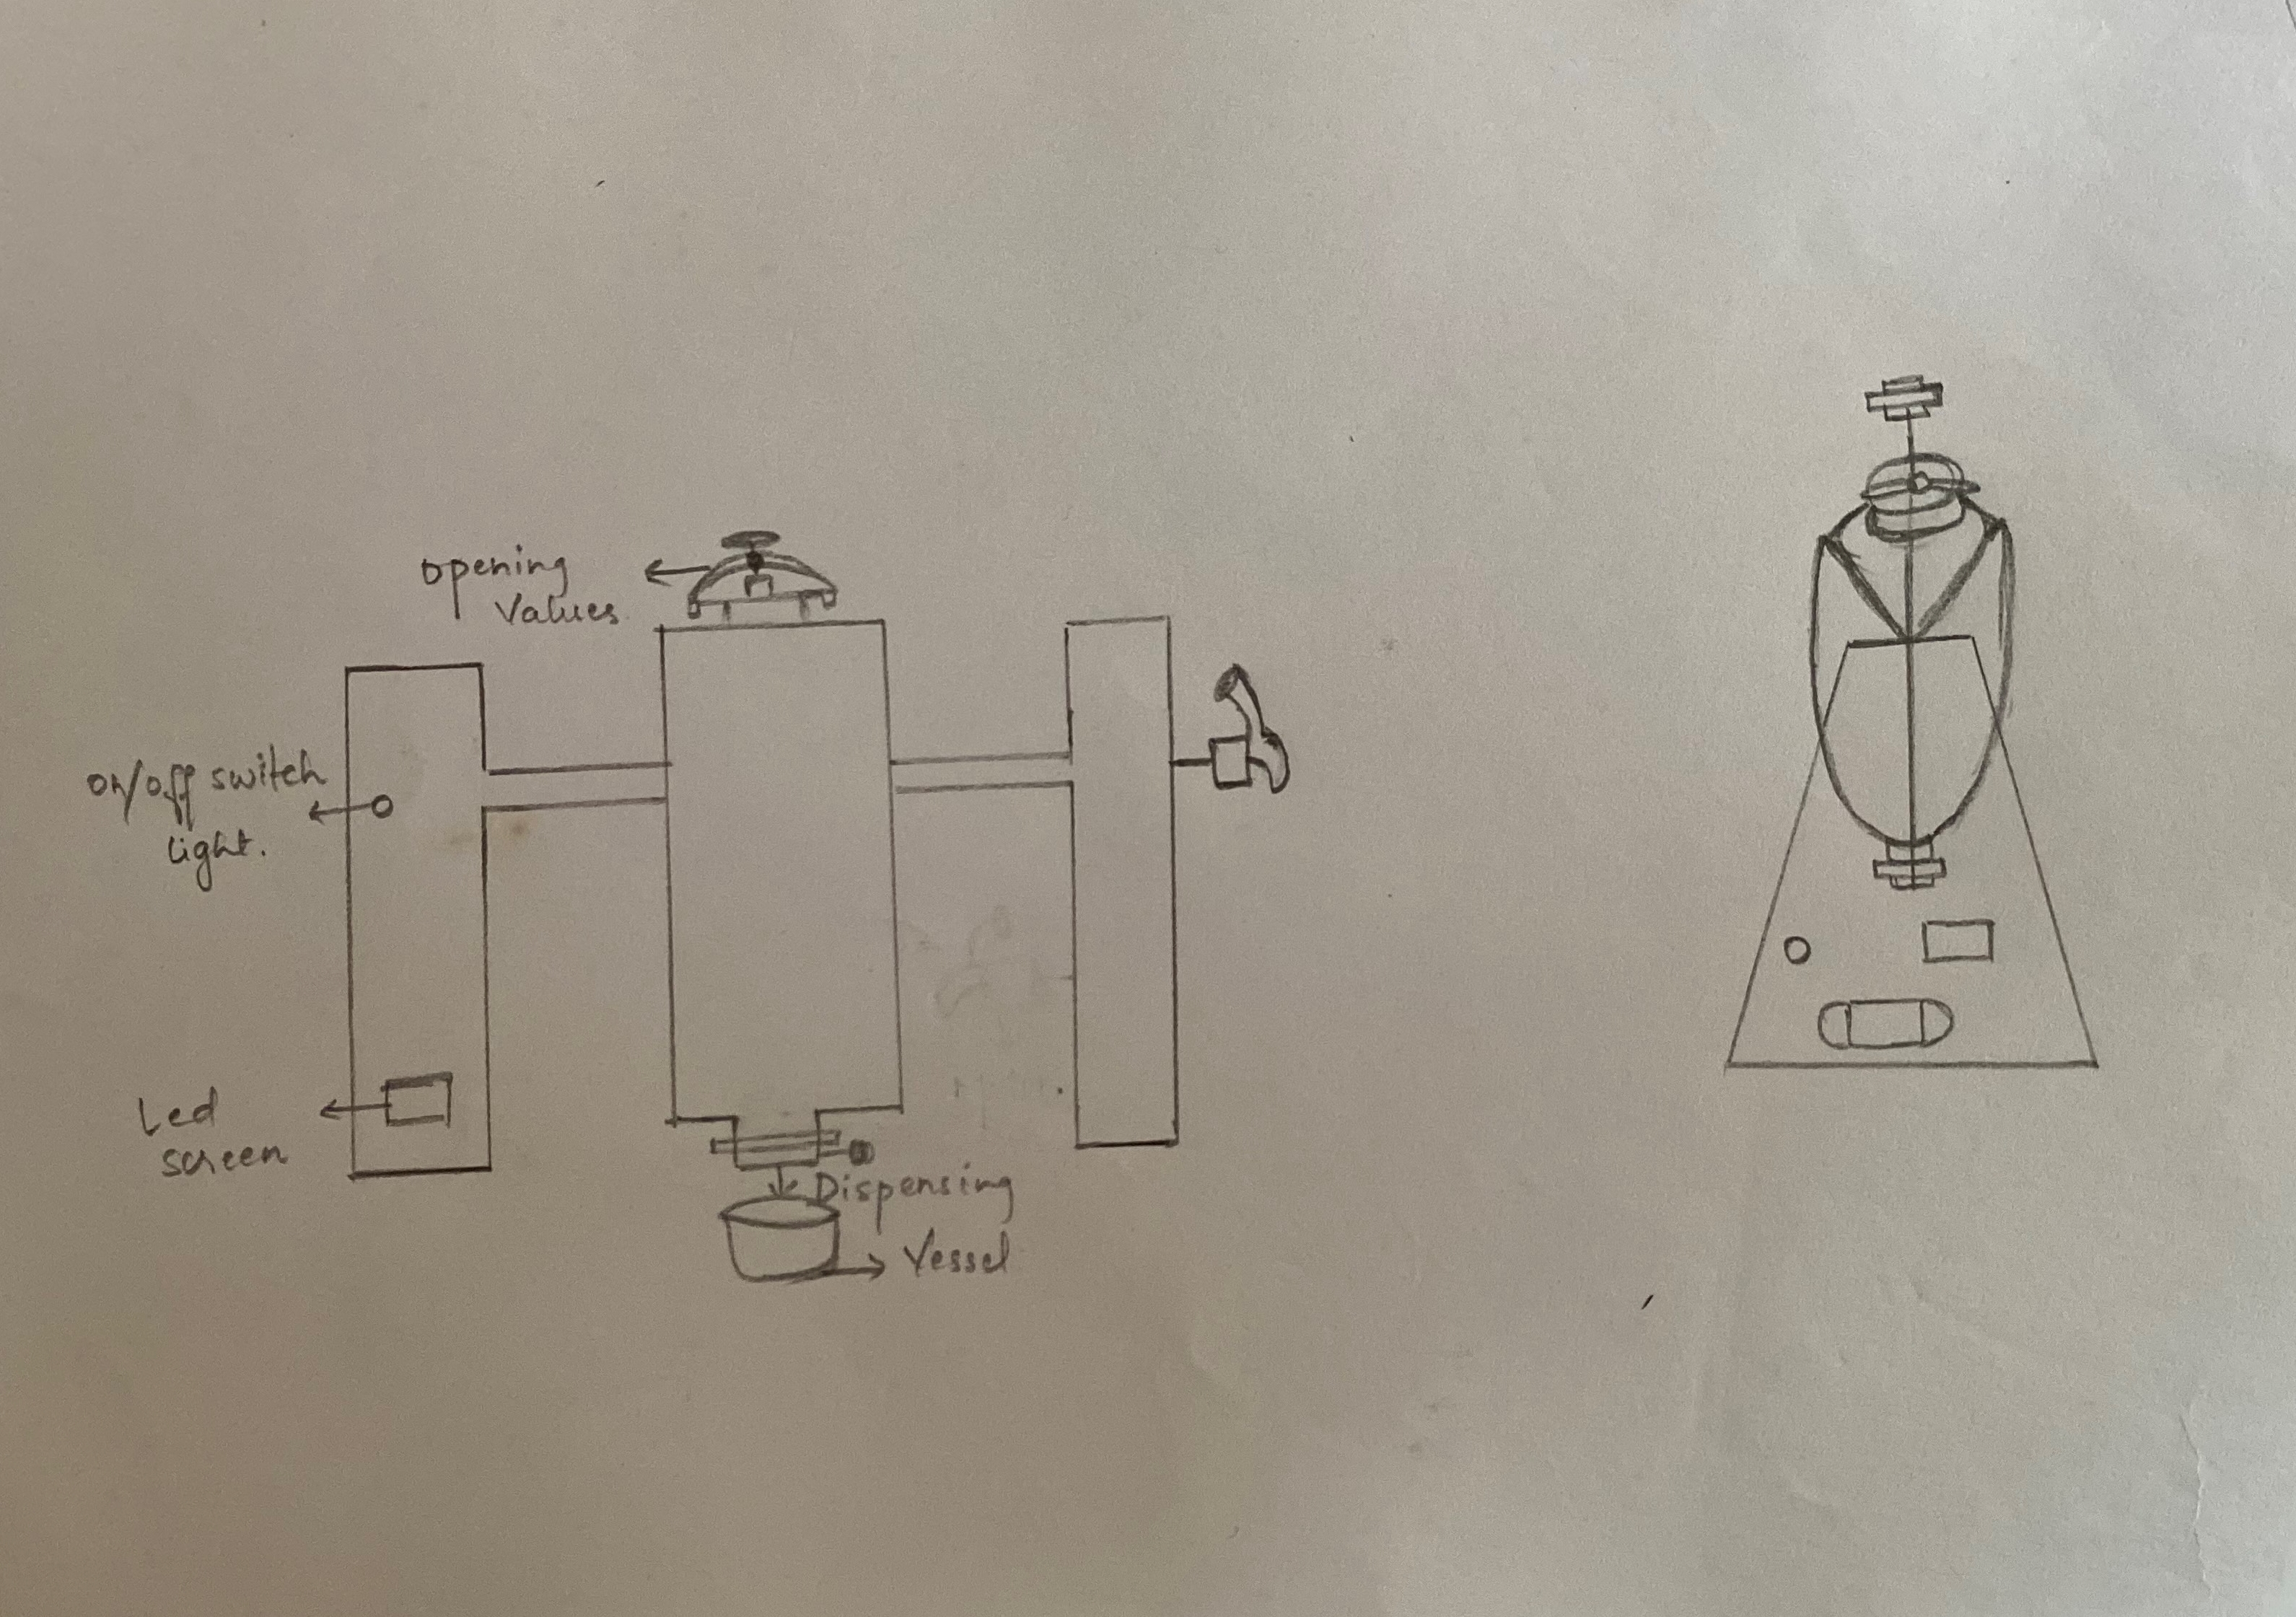 opening
Values
on/off switch
light.
Led
screen
Dispensing
Vessel